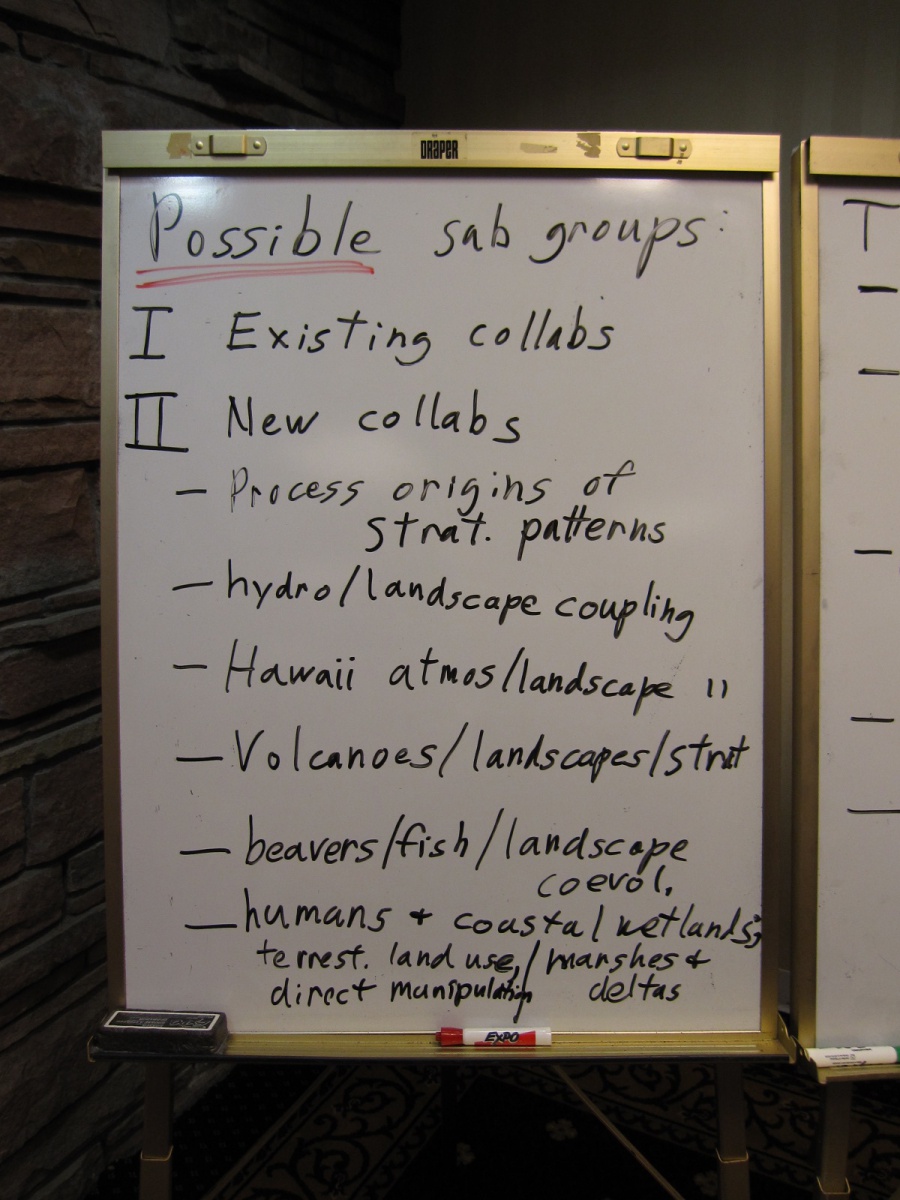 DRAPER
Possible sub groups:
I Existing collabs
II New collabs
— Process origins of
strat. patterns
— hydro/landscape coupling
— Hawaii atmos/landscape "
— Volcanoes/landscapes/strat
— beavers/fish/landscape
coevol.
— humans + coastal wetlands;
terrest. land use,/marshes +
direct manipulation deltas
EXPO
T